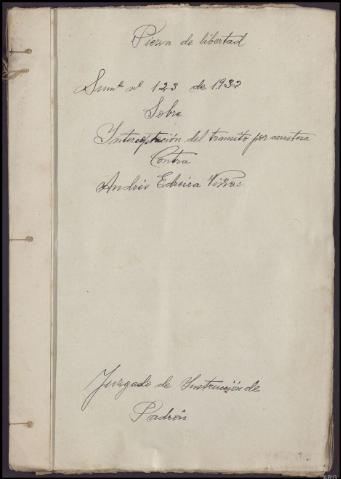 Pieza de libertad
Sumº nº 123 de 1932
Sobre
Interceptación del transito por carretera
Contra
Andrés Edreira
Juzgado de Instrucción de
Padrón